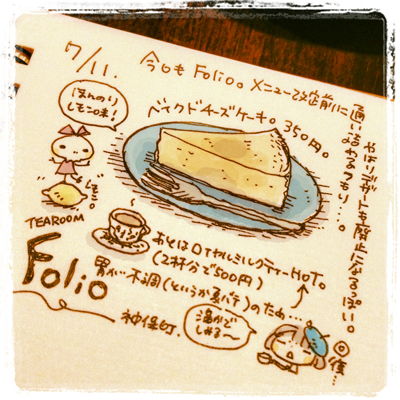 7/11.
今日も Folio。メニュー改定前に
通い詰めるつもり…。
やはりデザートも廃止になるっぽい。
ベイクドチーズケーキ。350円。
ほんのり
レモン味!
レモン。
TEAROOM
Folio
あとはロイヤルミルクティーHOT。
(2杯分で500円)
胃が不調(というか夏バテ)のため…
神保町.
温かで
しみる〜